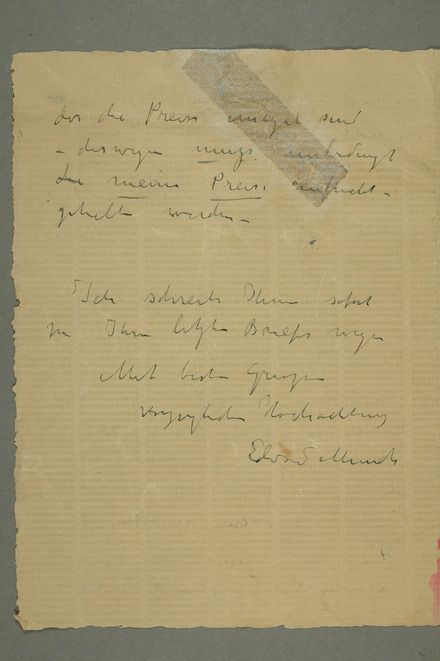 das die Preise ungal sind
– deswegen muss unbedingt
die meine Preise aufrecht-
gehalten werden –
Ich schreibe Ihnen sofort
Ihre letzte Briefs wegen
Mit besten Grüssen
vorzüglichster Hochachtung
Edvard Munch